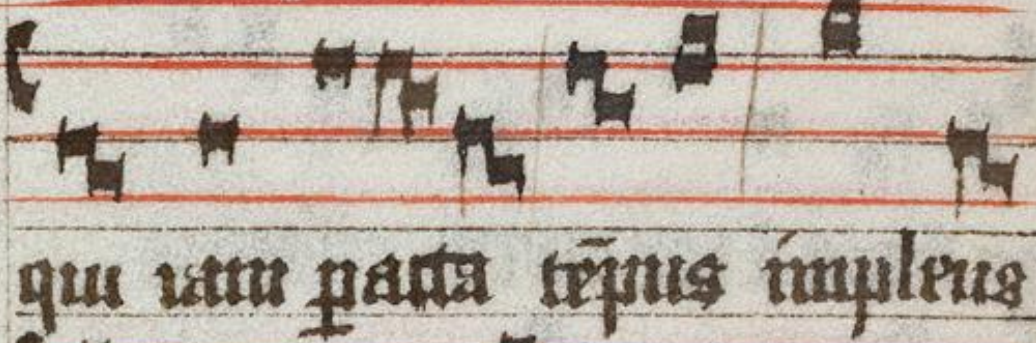 qui iam ꝑacta tēpus implens